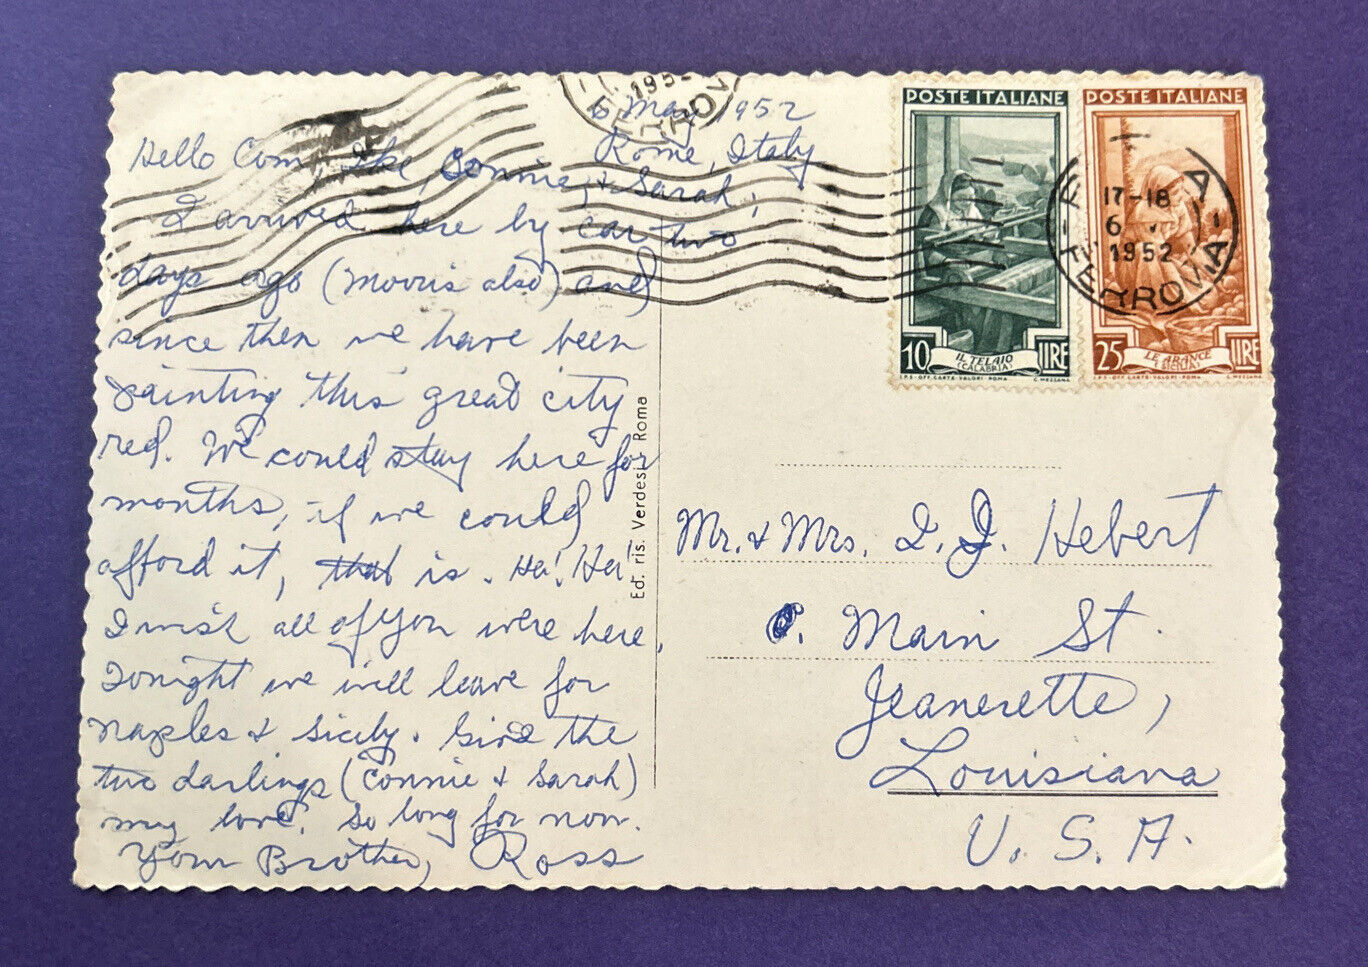 1952
ROMA
6 May 1952
Rome, Italy
Hello Com, Ike, Connie, & Sarah,
I arrived here by car two
days ago (Morris also) and
since then we have been
painting this great city
red. We could stay here for
months, if we could
afford it, that is. Ha! Ha!
I wish all of you were here.
Tonight we will leave for
Naples & Sicily. Give the
two darlings (Connie & Sarah)
my love. So long for now.
Your Brother, Ross
Ed. ris. Verdesi Roma
POSTE ITALIANE
10 IL TELAIO LIRE
(CALABRIA)
I.P.S.-OFF. CARTE-VALORI-ROMA C. MEZZANA
POSTE ITALIANE
25 LE ARANCE LIRE
(SICILIA)
I.P.S.-OFF. CARTE-VALORI-ROMA C. MEZZANA
17-18
6
1952
ROMA
Mr. & Mrs. I. J. Hebert
Main St.
Jeanerette,
Louisiana
U. S. A.